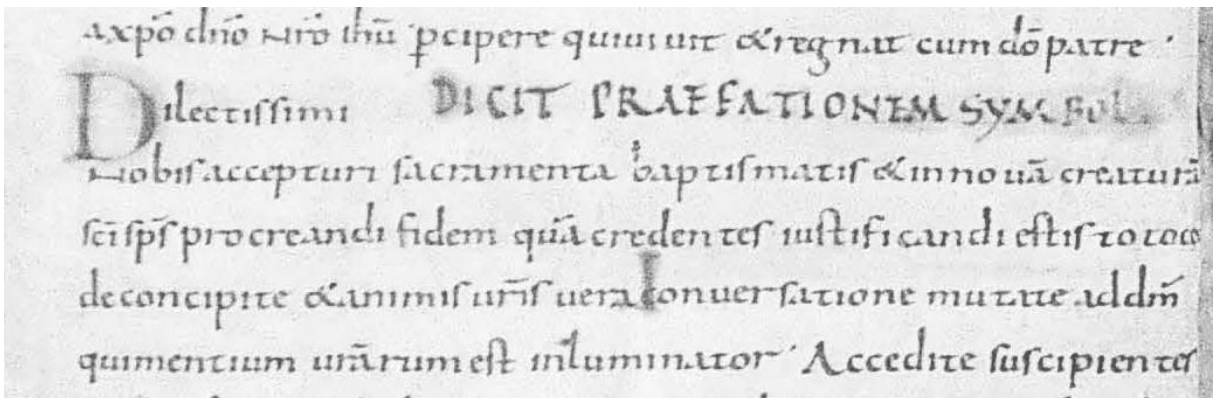 axpō dnō nrō ihū pcipere quiuiuit &regnat cum dō patre ·
Dilectissimi DICIT PRAEFATIONEM SYMBOL.
Nobis accepturi sacramenta baptismatis &inno uā creaturā
sci sps procreandi fidem quā credentes iustificandi estis toto co
de concipite &animis uris uera conuersatione mutate ad dm
qui mentium urārum est inluminator · Accedite suscipientes